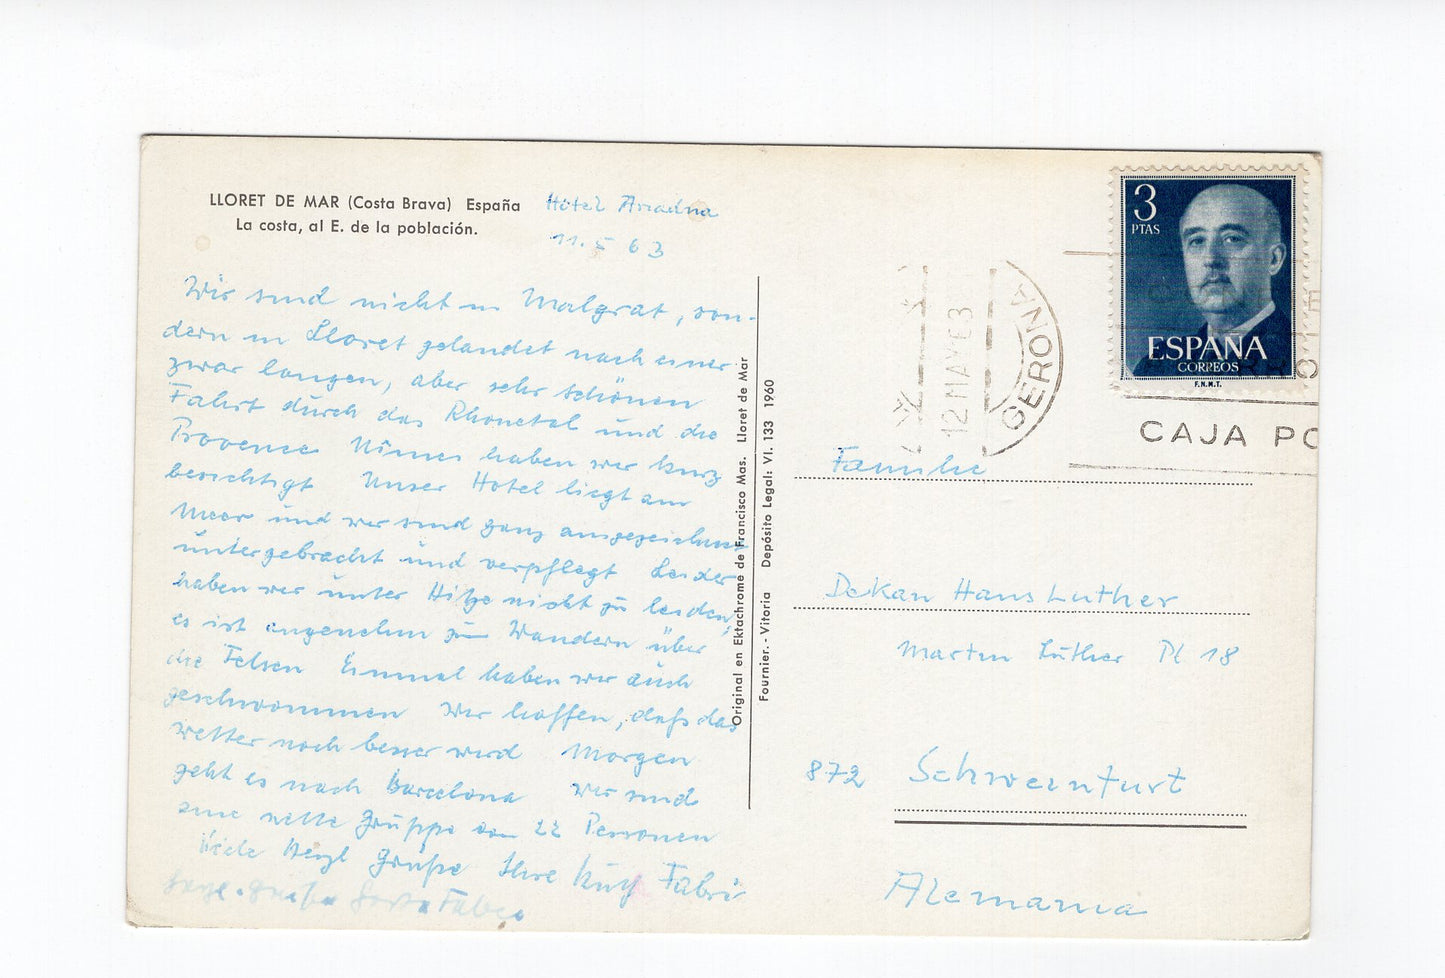 LLORET DE MAR (Costa Brava) España
La costa, al E. de la población.
Hotel Ariadna
11. 5 63
Wir sind nicht in Malgrat, son-
dern in Lloret gelandet nach einer
zwar langen, aber sehr schönen
Fahrt durch das Rhonetal und die
Provence Nîmes haben wir kurz
besichtigt Unser Hotel liegt am
Meer und wir sind ganz ausgezeichnet
untergebracht und verpflegt Leider
haben wir unter Hitze nicht zu leiden,
es ist angenehm zum Wandern über
die Felsen Einmal haben wir auch
geschwommen Wir hoffen, daß das
Wetter noch besser wird Morgen
geht es nach Barcelona Wir sind
eine nette Gruppe von 22 Personen
Viele Herzl Grüße Ihre Fabri
Herzl. Grüße Fabri
Original en Ektachrome de Francisco Mas. Lloret de Mar
Fournier. - Vitoria Depósito Legal: VI. 133 1960
GERONA
12 MAY 63
3
PTAS
ESPAÑA
CORREOS
F.N.M.T.
CAJA PO
Familie
Dekan Hans Luther
Martin Luther Pl 18
872 Schweinfurt
Alemania